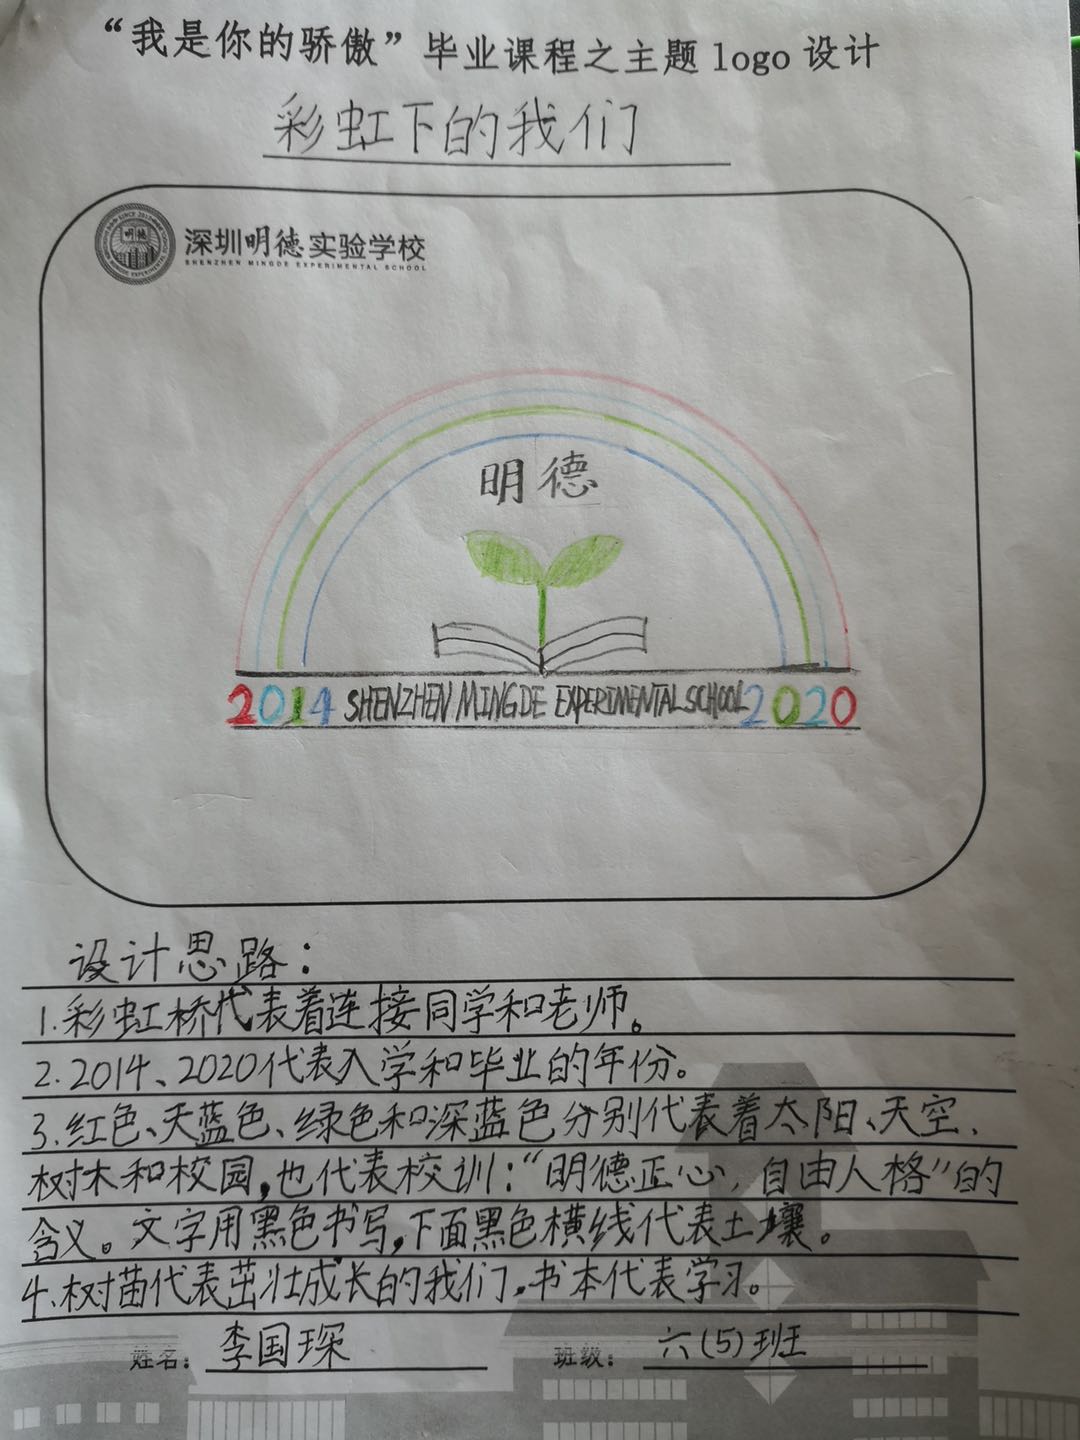 “我是你的骄傲”毕业课程之主题logo设计
彩虹下的我们
深圳明德实验学校
SHENZHEN MINGDE EXPERIMENTAL SCHOOL
明德
2014 SHENZHEN MINGDE EXPERIMENTAL SCHOOL 2020
设计思路：
1.彩虹桥代表着连接同学和老师。
2.2014、2020代表入学和毕业的年份。
3.红色、天蓝色、绿色和深蓝色分别代表着太阳、天空、
树木和校园，也代表校训：“明德正心，自由人格”的
含义。文字用黑色书写，下面黑色横线代表土壤。
4.树苗代表茁壮成长的我们，书本代表学习。
姓名：李国琛 班级：六(5)班